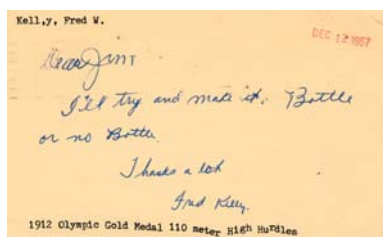 Kell,y, Fred W.
DEC 12 1967
Dear Jim
I'll try and make it. Bottle
or no Bottle.
Thanks a lot
Fred Kelly.
1912 Olympic Gold Medal 110 meter High Hurdles